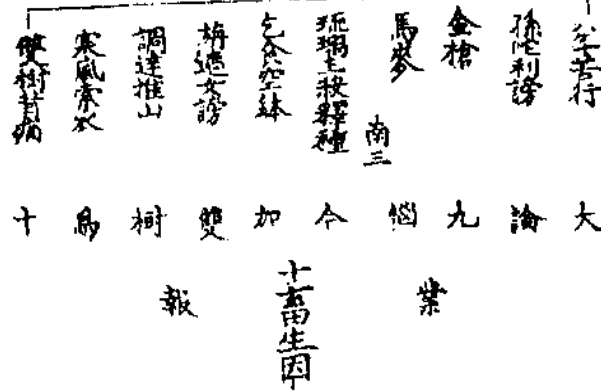 六年苦行
孫陀利謗
金槍
馬麥
南三
琉璃王殺釋種
乞食空鉢
栴遮女謗
調達推山
寒風索衣
雙樹背痛
大論九惱今加雙樹為十
業
報
十畜生因